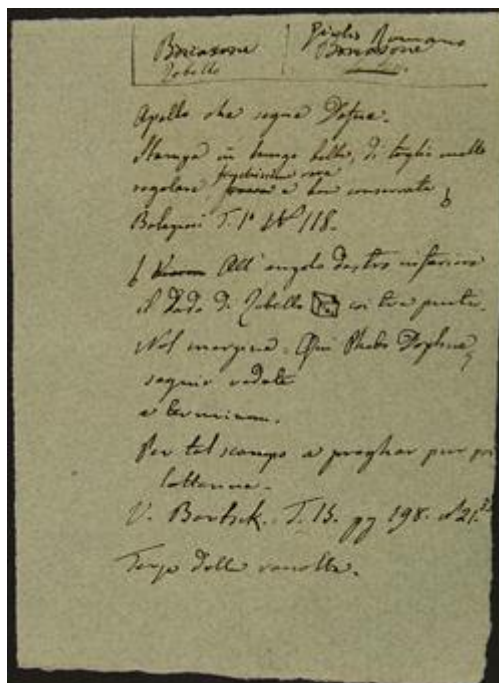 Bonasone Giulio Romano
Dabello Bonasone
Apollo che segue Dafne.
Stampa in lungo bella, di taglio molto
regolare, freschissima rara e ben conservata
Bolognesi T. 1º Nº 118.
All' angolo destro inferiore
il Dado di coi tre punti.
Nel margine. Qui Phebo Daphne
seguir vedete
e terminare.
Per tal scampo a preghar pur poi
V. Bartsck. T. 15. pg 198. nº 21.
Terzo della raccolta.